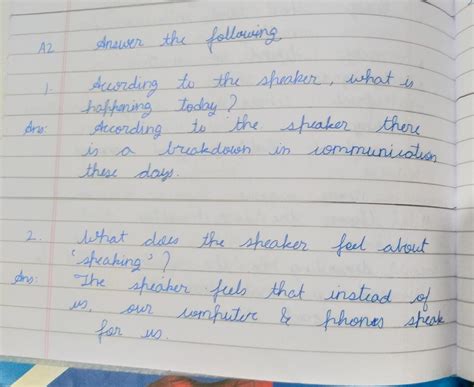 A2. Answer the following
1. According to the speaker, what is
happening today?
Ans: According to the speaker there
is a breakdown in communication
these days.
2. What does the speaker feel about
'speaking'?
Ans: The speaker feels that instead of
us, our computer & phones speak
for us.